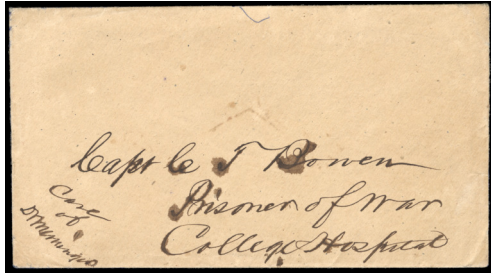 Capt C T Bowen
Prisoner of War
College Hospital
Care
of